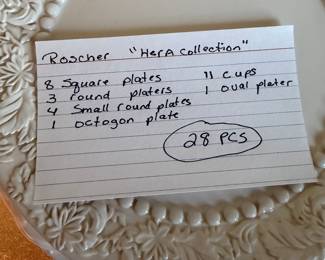 Roscher "Hera Collection"
8 Square plates
3 round platers
4 Small round plates
1 octogon plate
11 cups
1 oval plater
28 pcs